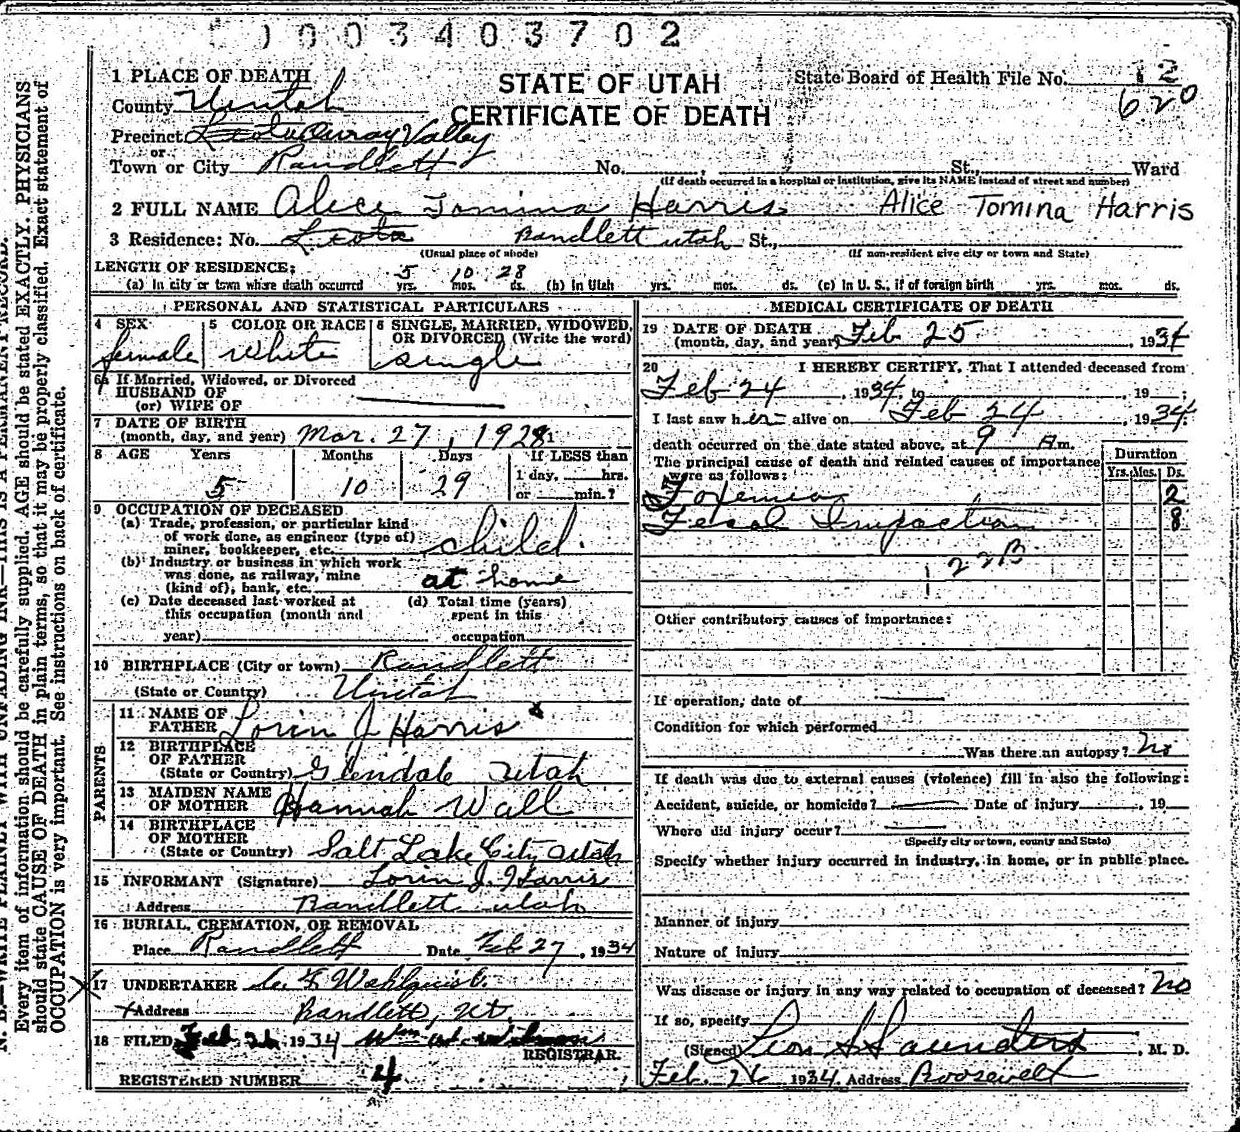 0 0 3 4 0 3 7 0 2
STATE OF UTAH
CERTIFICATE OF DEATH
State Board of Health File No. 12
620
1 PLACE OF DEATH
County Uintah
Precinct Leota Ouray Valley
or
Town or City Randlett No. St., Ward
(If death occurred in a hospital or institution, give its NAME instead of street and number)
2 FULL NAME Alice Tomina Harris Alice Tomina Harris
3 Residence: No. Leota Randlett Utah St.,
(Usual place of abode) (If non-resident give city or town and State)
LENGTH OF RESIDENCE:
(a) In city or town where death occurred 5 yrs. 10 mos. 28 ds. (b) In Utah yrs. mos. ds. (c) In U. S., if of foreign birth yrs. mos. ds.
PERSONAL AND STATISTICAL PARTICULARS
4 SEX female
5 COLOR OR RACE White
6 SINGLE, MARRIED, WIDOWED, OR DIVORCED (Write the word)
single
6a If Married, Widowed, or Divorced
HUSBAND OF
(or) WIFE OF
7 DATE OF BIRTH
(month, day, and year) Mar. 27, 1928
8 AGE Years Months Days If LESS than
1 day, hrs.
or min.?
5 10 29
9 OCCUPATION OF DECEASED
(a) Trade, profession, or particular kind
of work done, as engineer (type of)
miner, bookkeeper, etc. child.
(b) Industry or business in which work
was done, as railway, mine
(kind of), bank, etc. at home
(c) Date deceased last worked at
this occupation (month and
year)
(d) Total time (years)
spent in this
occupation
10 BIRTHPLACE (City or town) Randlett
(State or Country) Uintah
PARENTS
11 NAME OF
FATHER Lorin J Harris
12 BIRTHPLACE
OF FATHER
(State or Country) Glendale Utah
13 MAIDEN NAME
OF MOTHER Hannah Wall
14 BIRTHPLACE
OF MOTHER
(State or Country) Salt Lake City Utah
15 INFORMANT (Signature) Lorin J. Harris
Address Randlett Utah
16 BURIAL, CREMATION, OR REMOVAL
Place Randlett Date Feb 27, 1934
17 UNDERTAKER Wahlquist.
Address Randlett, Ut
18 FILED Feb. 26 1934
REGISTRAR.
REGISTERED NUMBER 4
MEDICAL CERTIFICATE OF DEATH
19 DATE OF DEATH
(month, day, and year) Feb 25, 1934
20 I HEREBY CERTIFY, That I attended deceased from
Feb 24, 1934, to , 19 ;
I last saw her alive on Feb 24, 1934.
death occurred on the date stated above, at 9 A m.
The principal cause of death and related causes of importance
were as follows:
Duration
Yrs. Mos. Ds.
Toxemia 2
Fecal Impaction 8
122B
Other contributory causes of importance:
If operation, date of
Condition for which performed
Was there an autopsy? No
If death was due to external causes (violence) fill in also the following:
Accident, suicide, or homicide? Date of injury , 19
Where did injury occur?
(Specify city or town, county and State)
Specify whether injury occurred in industry, in home, or in public place.
Manner of injury
Nature of injury
Was disease or injury in any way related to occupation of deceased? No
If so, specify
(Signed) Leon S Saunders, M. D.
Feb. 26 1934 Address Roosevelt
N. B.—WRITE PLAINLY WITH UNFADING INK—THIS IS A PERMANENT RECORD.
Every item of information should be carefully supplied. AGE should be stated EXACTLY. PHYSICIANS
should state CAUSE OF DEATH in plain terms, so that it may be properly classified. Exact statement of
OCCUPATION is very important. See instructions on back of certificate.